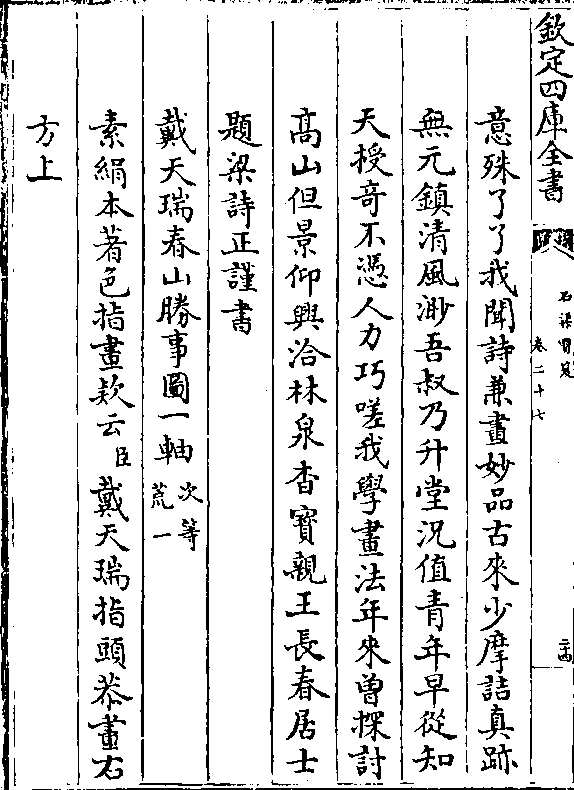 欽定四庫全書
石渠寶笈
卷二十七
二十四
意殊了了我聞詩兼畫妙品古來少摩詰真跡
無元鎮清風渺吾叔乃升堂況值青年早從知
天授奇不憑人力巧嗟我學畫法年來曾探討
高山但景仰興洽林泉杳寶親王長春居士
題梁詩正謹書
戴天瑞春山勝事圖一軸 次等荒一
素絹本著色指畫欵云臣戴天瑞指頭恭畫右
方上